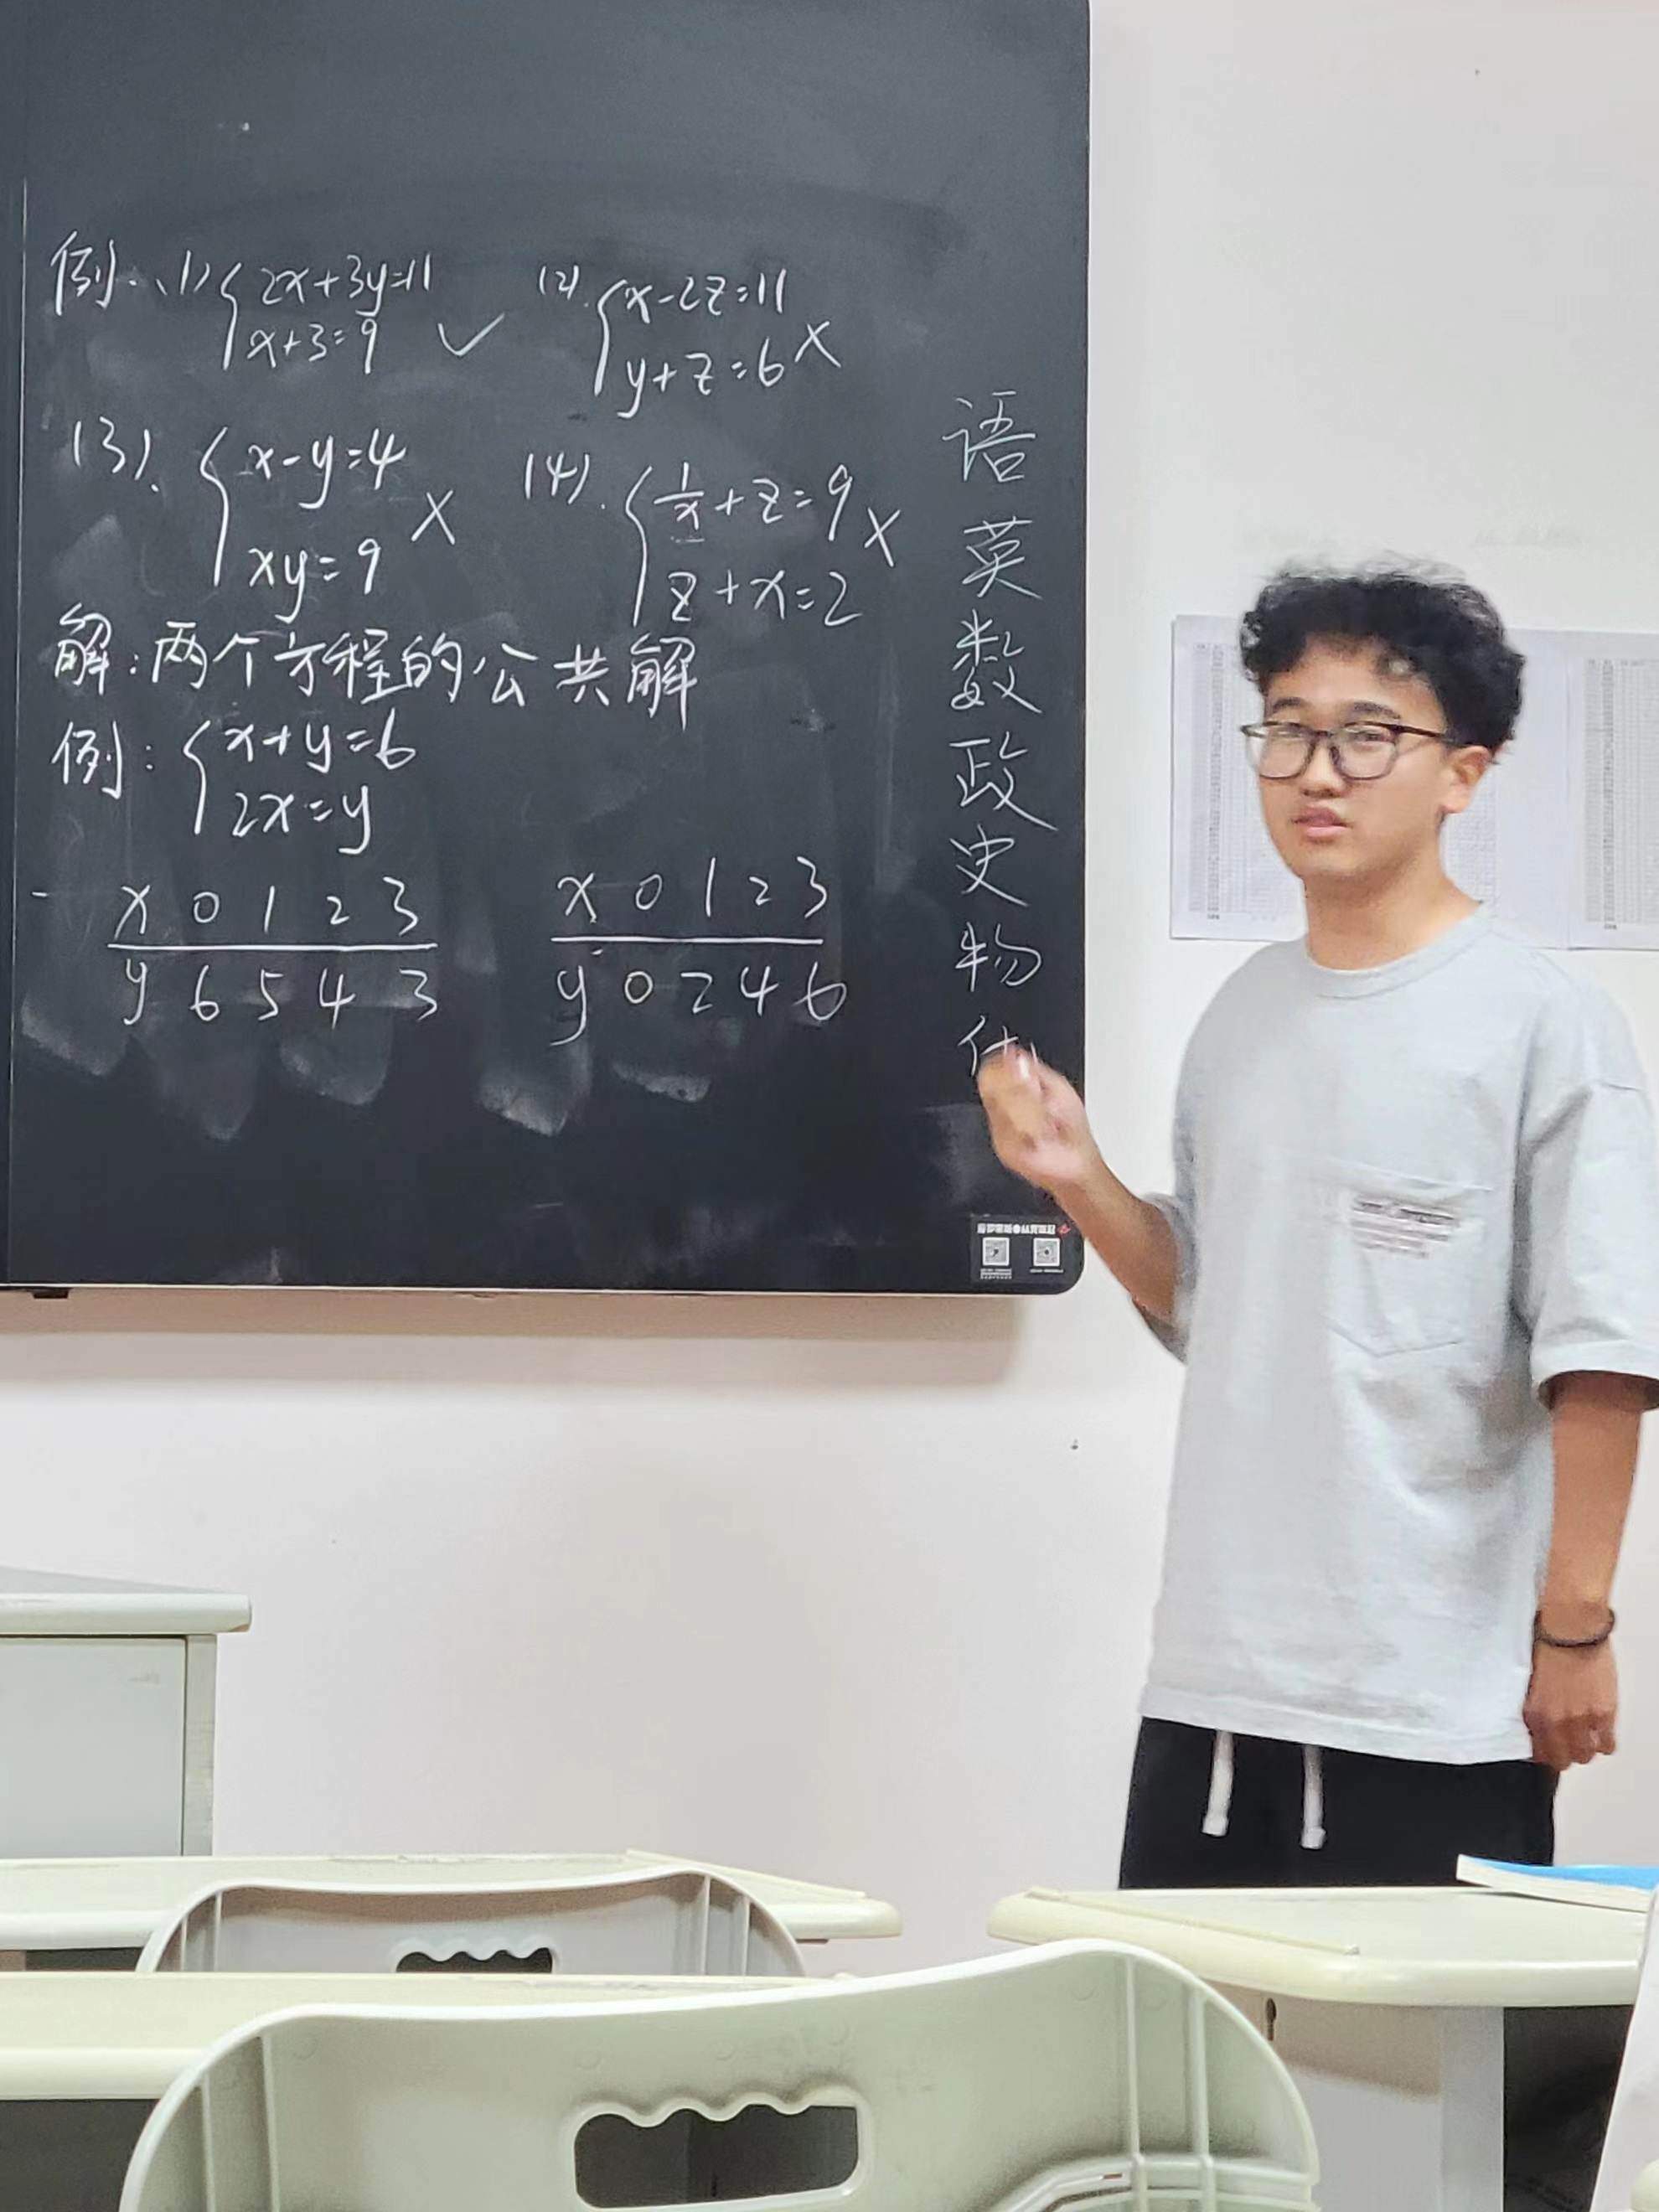 例.(1) { 2x+3y=11
x+3=9 ✓
(2). { x-2z=11
y+z=6 ×
(3). { x-y=4
xy=9 ×
(4). { 1/x+z=9
z+x=2 ×
解:两个方程的公共解
例: { x+y=6
2x=y
x 0 1 2 3
y 6 5 4 3
x 0 1 2 3
y 0 2 4 6
语
英
数
政
史
物